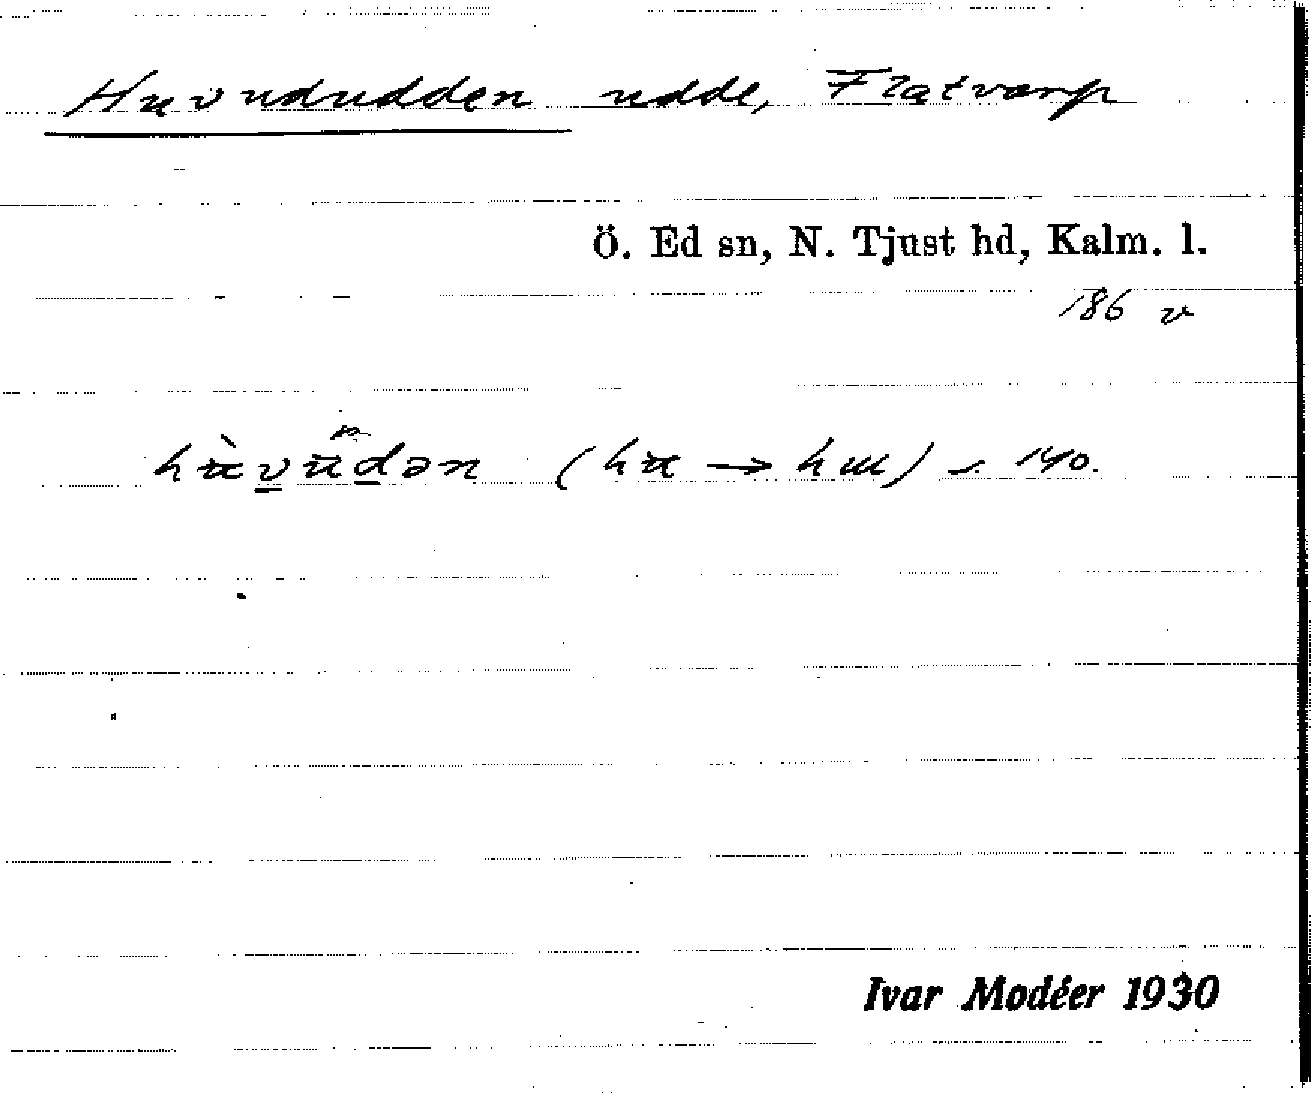 Huvududden udde, Flatvarp
Ö. Ed sn, N. Tjust hd, Kalm. l.
186 v
s. 140.
Ivar Modéer 1930